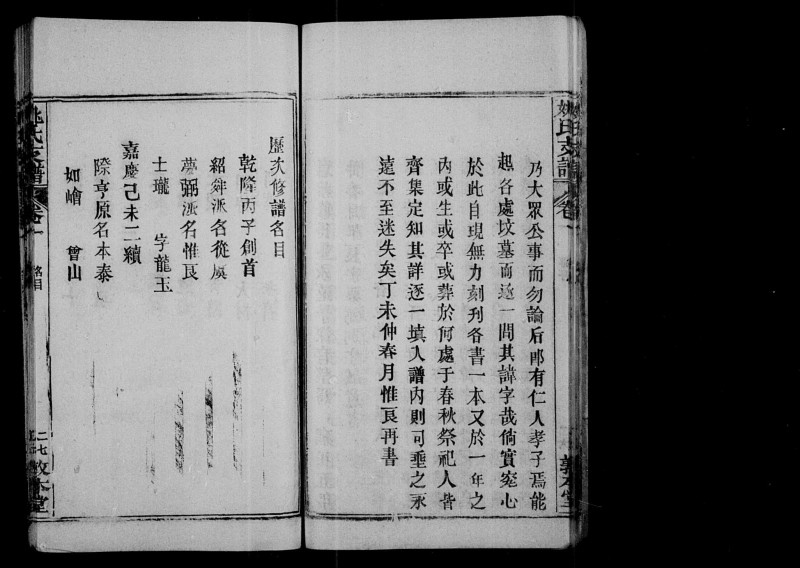 乃大眾公事而勿論后即有仁人孝子焉能
起各處坟墓而逐一問其諱字哉倘實究心
於此自現無力刻刋各書一本又於一年之
內或生或卒或葬於何處于春秋祭祀人皆
齊集定知其詳逐一填入譜內則可垂之永
遠不至迷失矣丁未仲春月惟良再書
歷次修譜名目
乾隆丙子創首
紹舜派名從虞
夢弼派名惟良
士瓏 字龍玉
嘉慶己未二續
際亨原名本泰
如嶒 曾山
姚氏支譜 卷一 名目 敦本堂